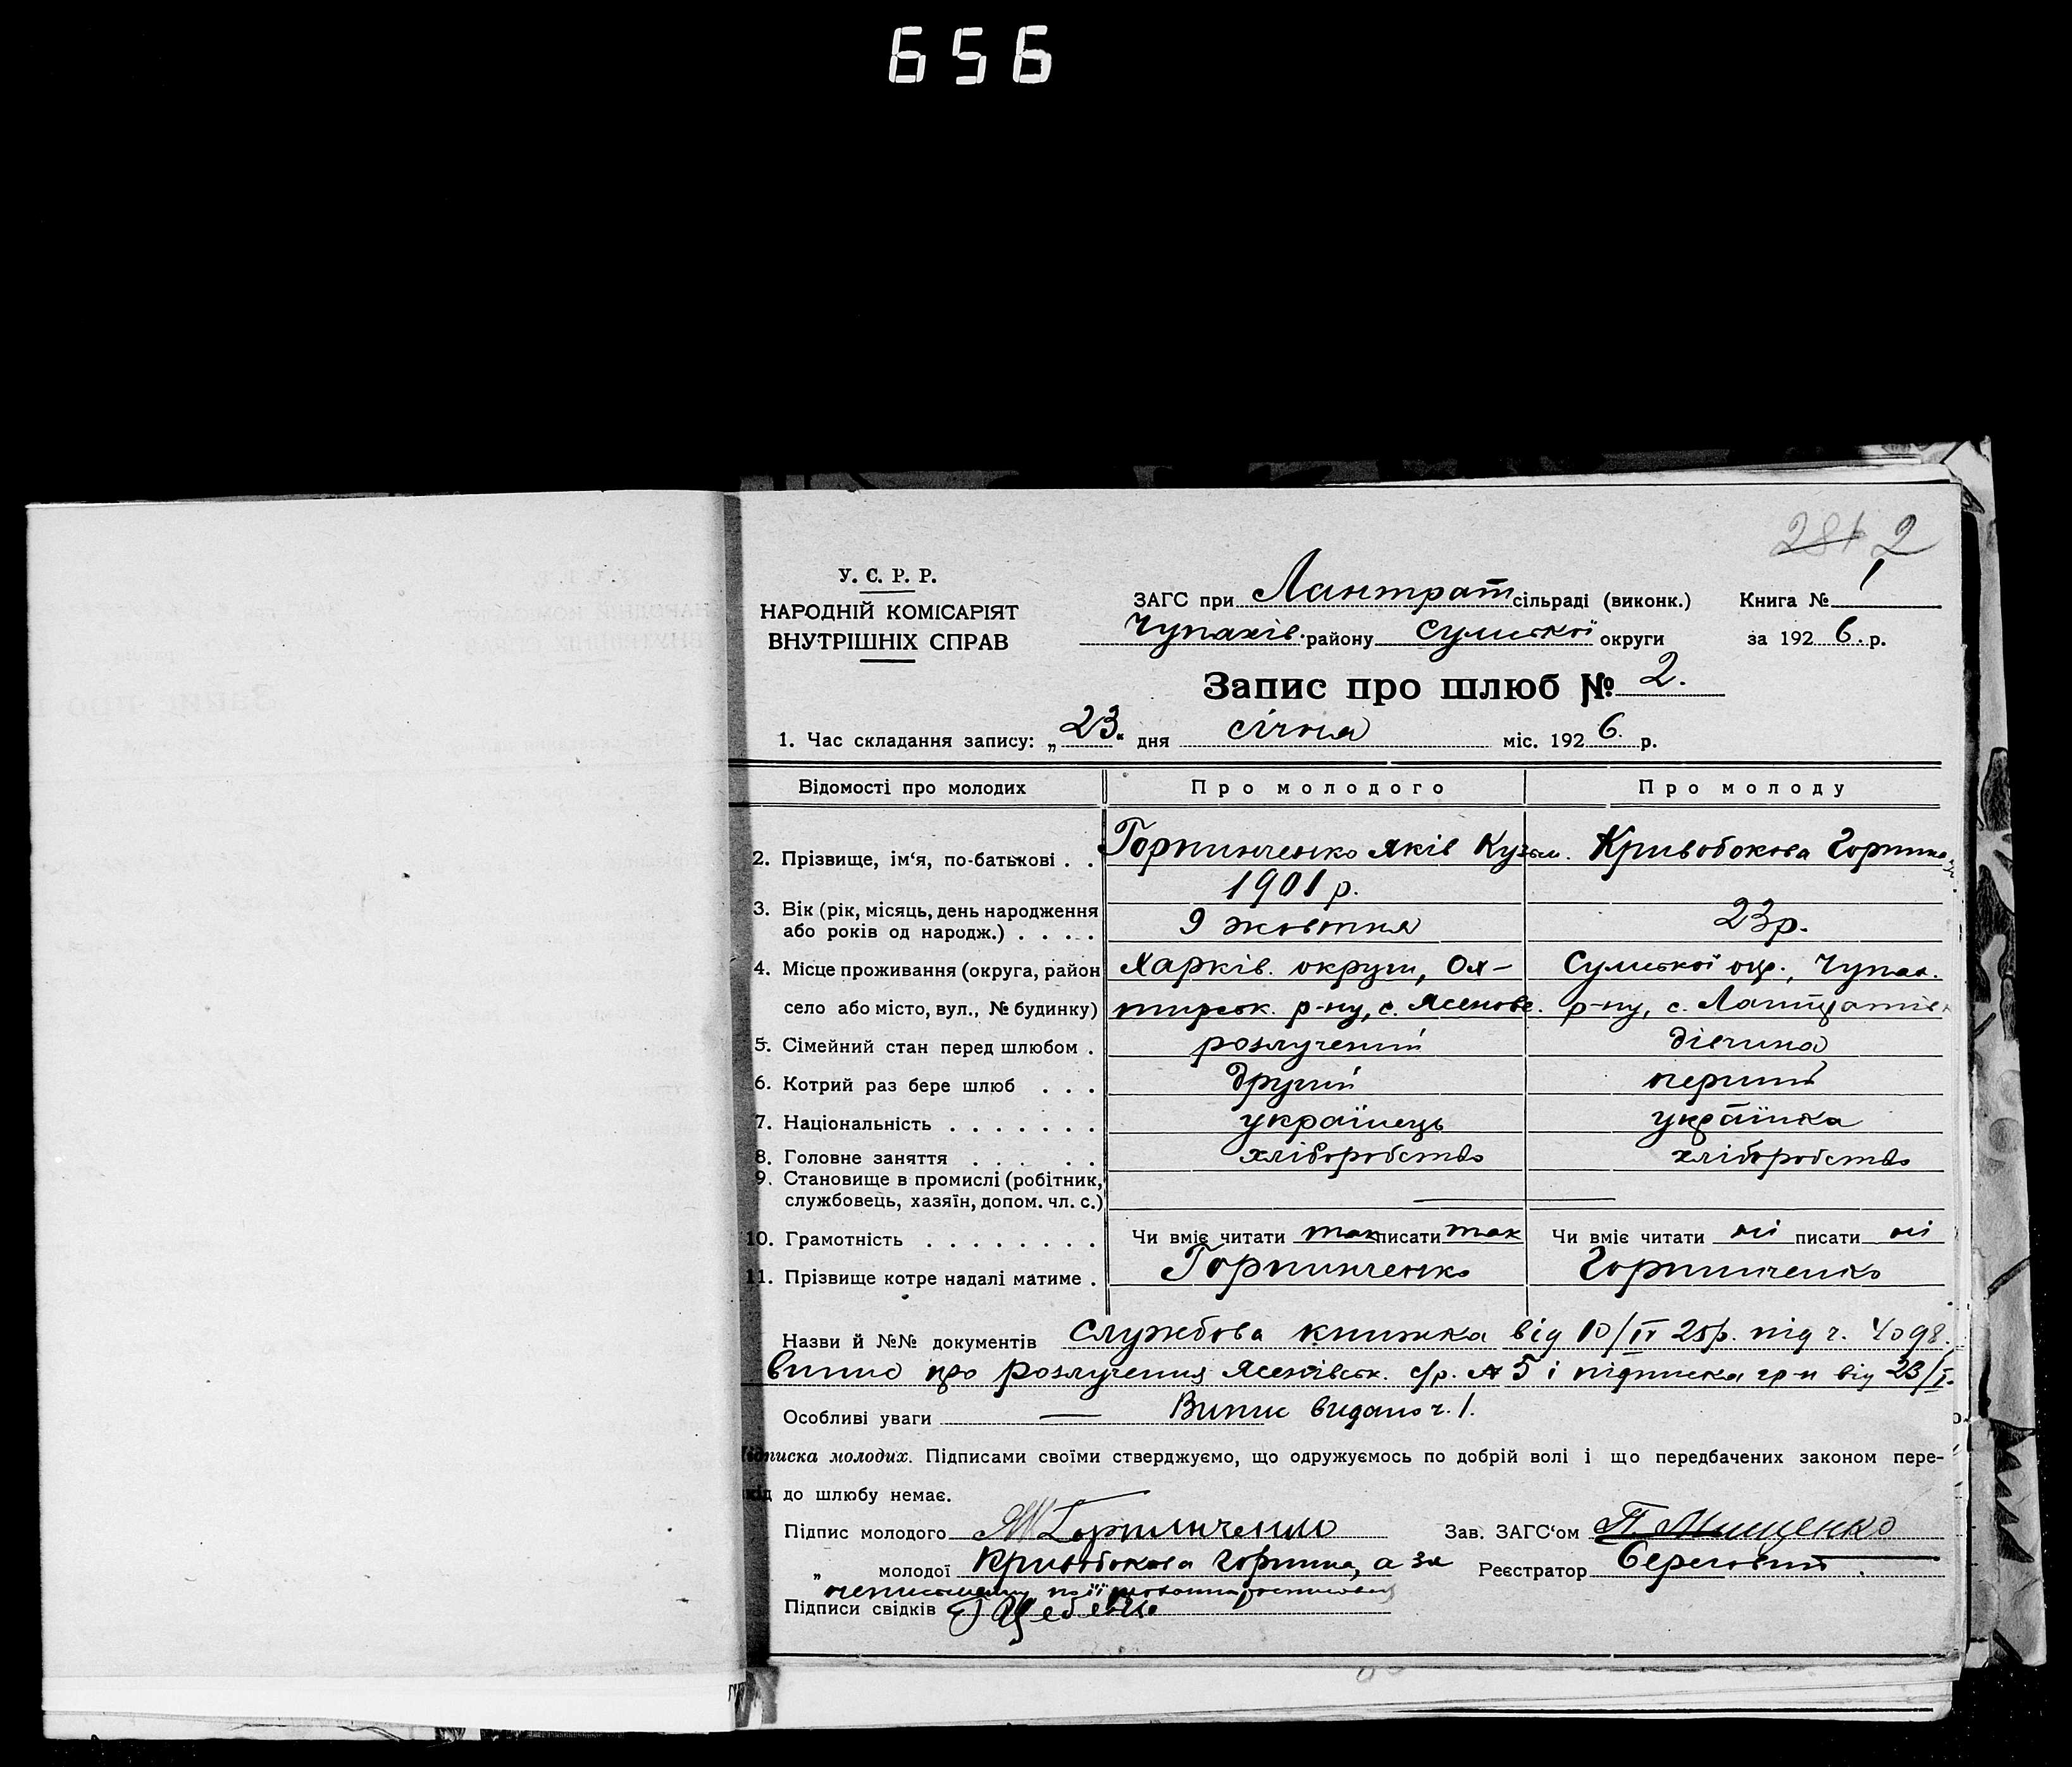 656
281 2
У. С. Р. Р.
НАРОДНІЙ КОМІСАРІЯТ
ВНУТРІШНІХ СПРАВ
ЗАГС при Лантрат сільраді (виконк.) Книга № 1
Чупахів. району Сумської округи за 1926. р.
Запис про шлюб № 2.
1. Час складання запису: „23." дня січня міс. 1926. р.
Відомості про молодих Про молодого Про молоду
2. Прізвище, ім‘я, по-батькові . . Горпинченко Яків Кузьм. Кривобокова Горпина
1901 р.
3. Вік (рік, місяць, день народження
або років од народж.) . . . . 9 жовтня 23 р.
4. Місце проживання (округа, район Харків. округи, Ох- Сумської окр., Чупах.
село або місто, вул., № будинку) тирськ. р-ну, с. Ясенове. р-ну, с. Лантратів
5. Сімейний стан перед шлюбом . розлучений дівчина
6. Котрий раз бере шлюб . . . другий перший
7. Національність . . . . . . . українець українка
8. Головне заняття . . . . . . хліборобство хліборобство
9. Становище в промислі (робітник,
службовець, хазяїн, допом. чл. с.) —
10. Грамотність . . . . . . . . Чи вміє читати так писати так Чи вміє читати ні писати ні
11. Прізвище котре надалі матиме . Горпинченко Горпинченко
Назви й №№ документів Службова книжка від 10/II 25р. під ч. 4098.
Випис про розлучення Ясенівськ. с/р. № 5 і підписка гр-н від 23/I.
Особливі уваги — Випис видано ч. 1.
Підписка молодих. Підписами своїми стверджуємо, що одружуємось по добрій волі і що передбачених законом пере-
кід до шлюбу немає.
Підпис молодого Я Горпинченко Зав. ЗАГС‘ом П. Мищенко
„ молодої Кривобокова Горпина, а за Реєстратор Береговий.
неписьмену по її
Підписи свідків